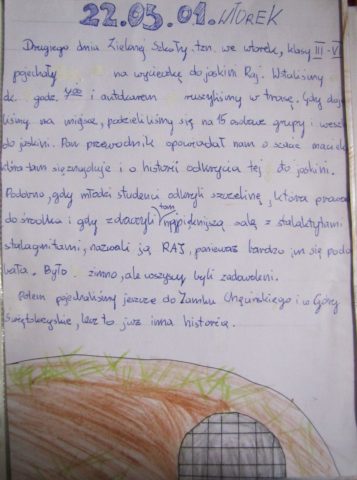 22.05.01. WTOREK
Drugiego dnia Zielonej Szkoły, tzn. we wtorek, klasy III - V
pojechały na wycieczkę do jaskini Raj. Wstaliśmy
ok. godz. 7⁰⁰ i autokarem ruszyliśmy w trasę. Gdy doje
liśmy na miejsce, podzieliliśmy się na 15 osobowe grupy i weszl
do jaskini. Pan przewodnik opowiadał nam o
która tam się znajduje i o historii odkrycia tej to jaskini.
Podobno, gdy młodzi studenci odkryli szczelinę, która prowa
do środka i gdy zobaczyli tam najpiękniejszą salę z stalaktytami
stalagmitami, nazwali ją RAJ, ponieważ bardzo im się podo
bała. Było zimno, ale wszyscy byli zadowoleni.
Potem pojechaliśmy jeszcze do Zamku Chęcińskiego i w Góry
Świętokrzyskie, lecz to już inna historia.